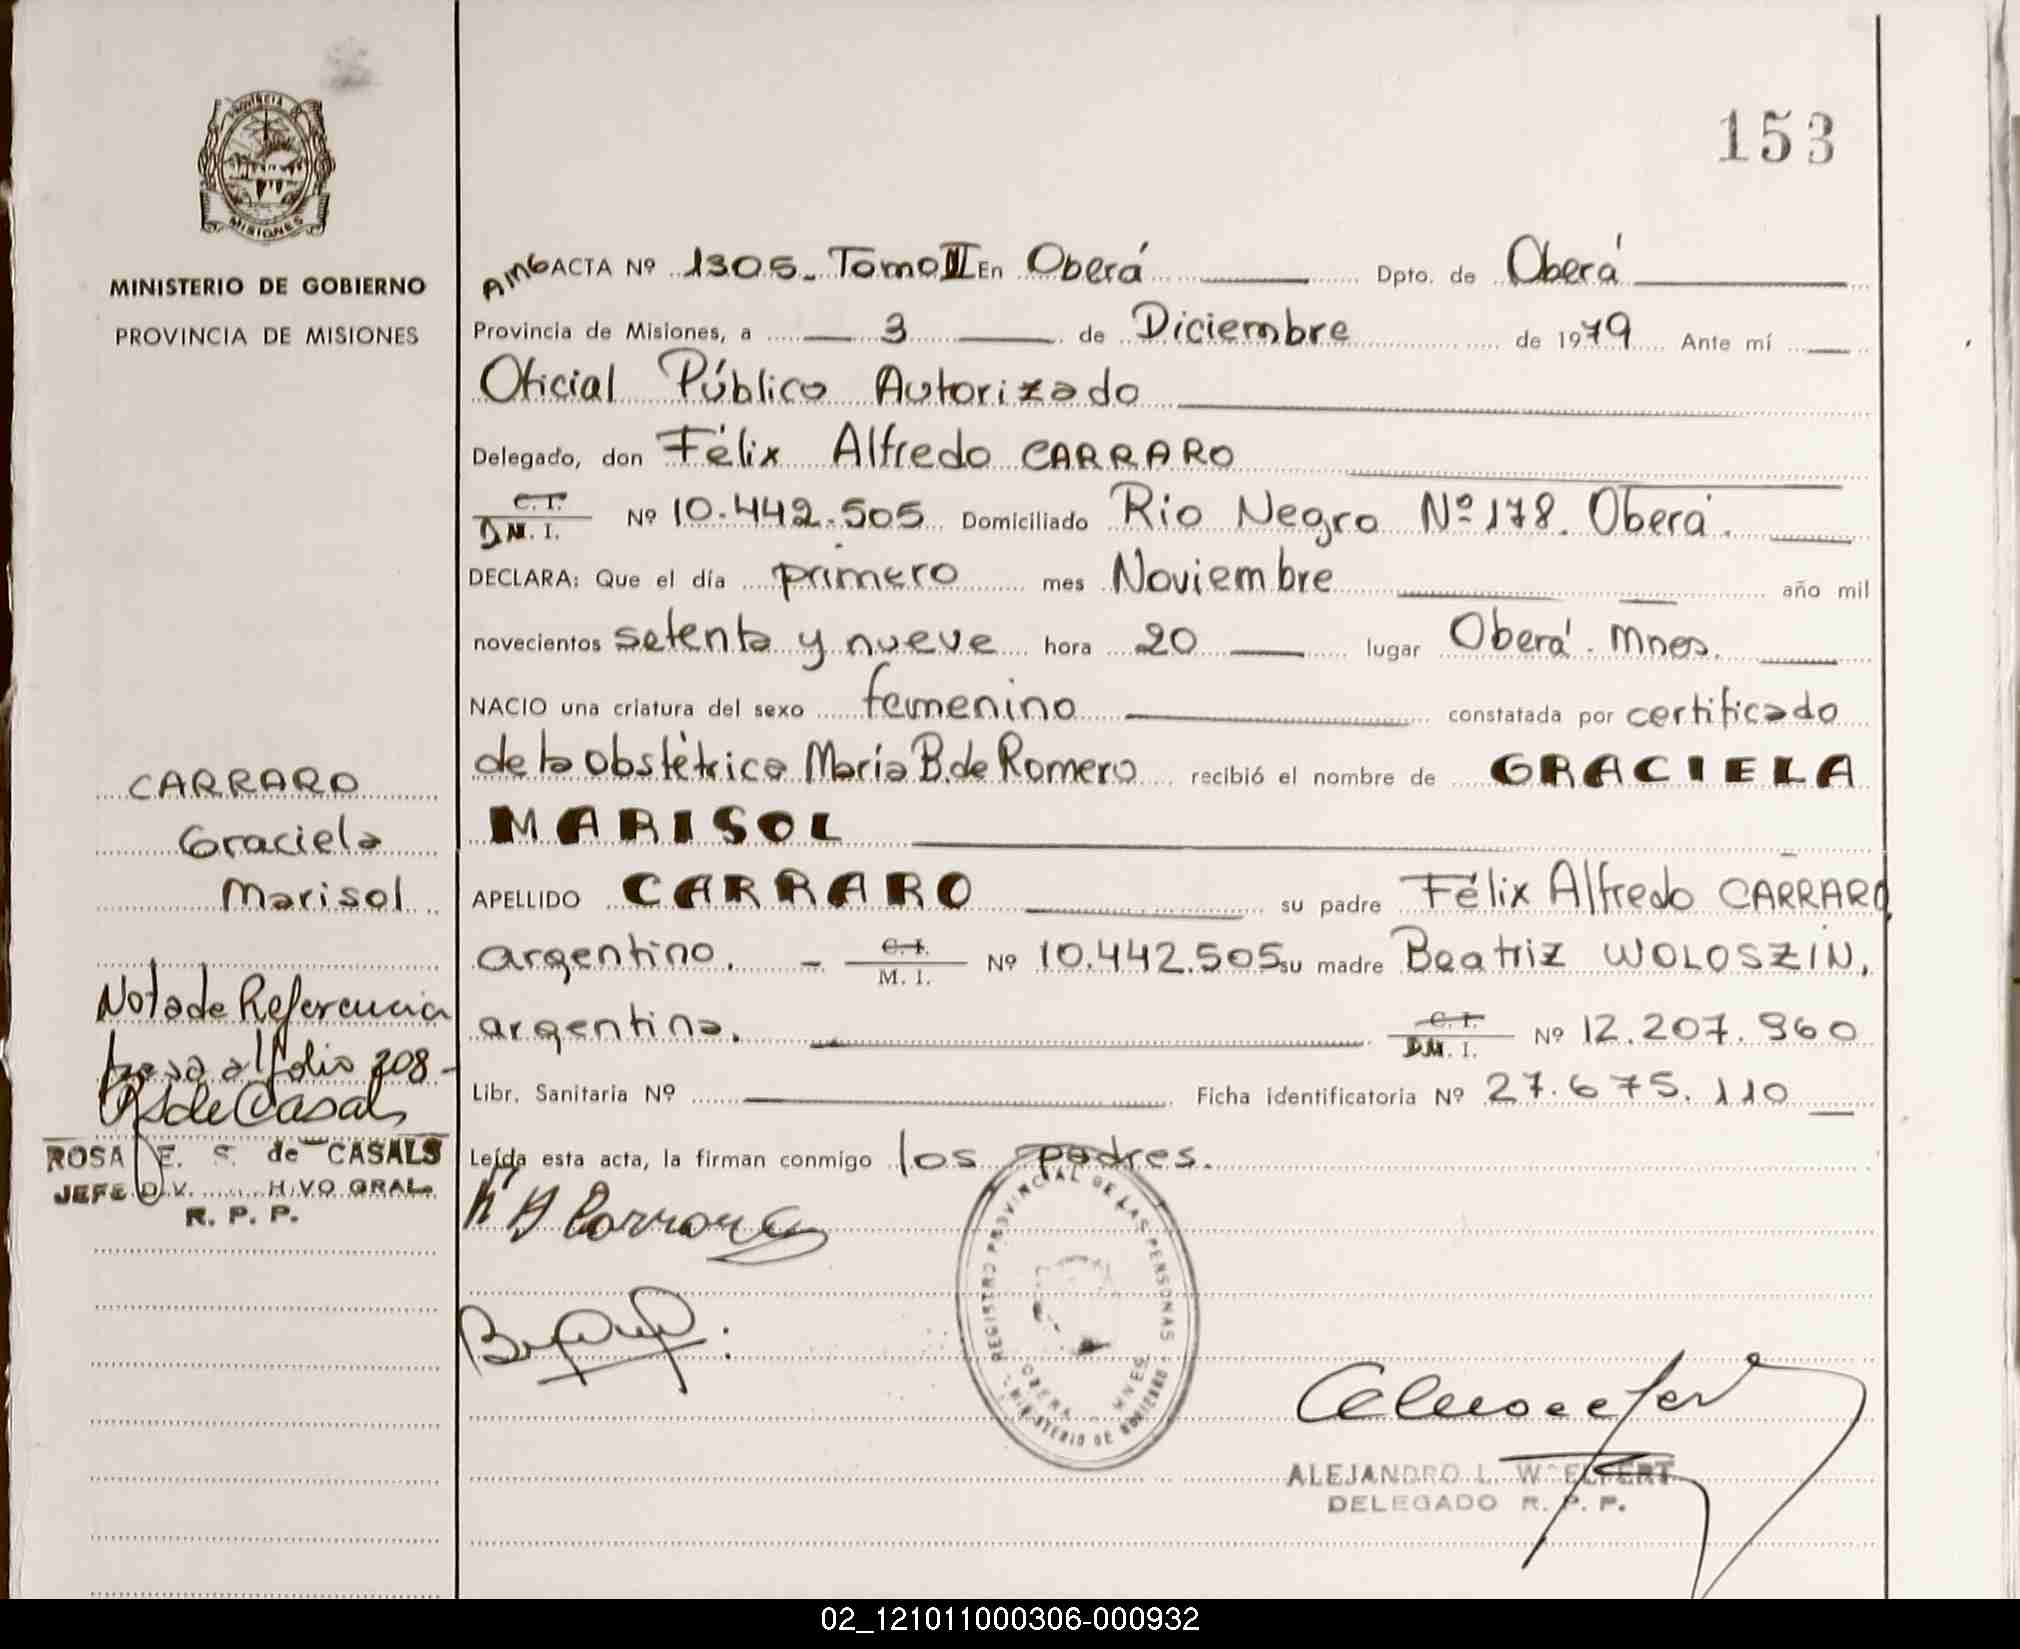 153
PROVINCIA DE
MISIONES
MINISTERIO DE GOBIERNO
PROVINCIA DE MISIONES
AMG ACTA Nº 1305. Tomo II En Oberá Dpto. de Oberá
Provincia de Misiones, a 3 de Diciembre de 1979 Ante mí
Oficial Público Autorizado
Delegado, don Félix Alfredo CARRARO
C. I.
D.M. I. Nº 10.442.505 Domiciliado Río Negro Nº 178. Oberá.
DECLARA: Que el día primero mes Noviembre año mil
novecientos setenta y nueve hora 20 lugar Oberá. Mnes.
NACIO una criatura del sexo femenino constatada por certificado
de la obstétrica María B. de Romero recibió el nombre de GRACIELA
MARISOL
APELLIDO CARRARO su padre Félix Alfredo CARRARO,
argentino. - C. I. M. I. Nº 10.442.505 su madre Beatriz WOLOSZIN,
argentina. C. I. D.M. I. Nº 12.207.960
Libr. Sanitaria Nº Ficha identificatoria Nº 27.675.110
Leída esta acta, la firman conmigo los padres.
CARRARO
Graciela
Marisol
Nota de Referencia
pasa al folio 208-
ROSA E. S. de CASALS
JEFE DIV. H.VO GRAL.
R. P. P.
REGISTRO PROVINCIAL DE LAS PERSONAS
OBERA - MNES
MINISTERIO DE GOBIERNO
ALEJANDRO L. WELFERT
DELEGADO R. P. P.
02_121011000306-000932